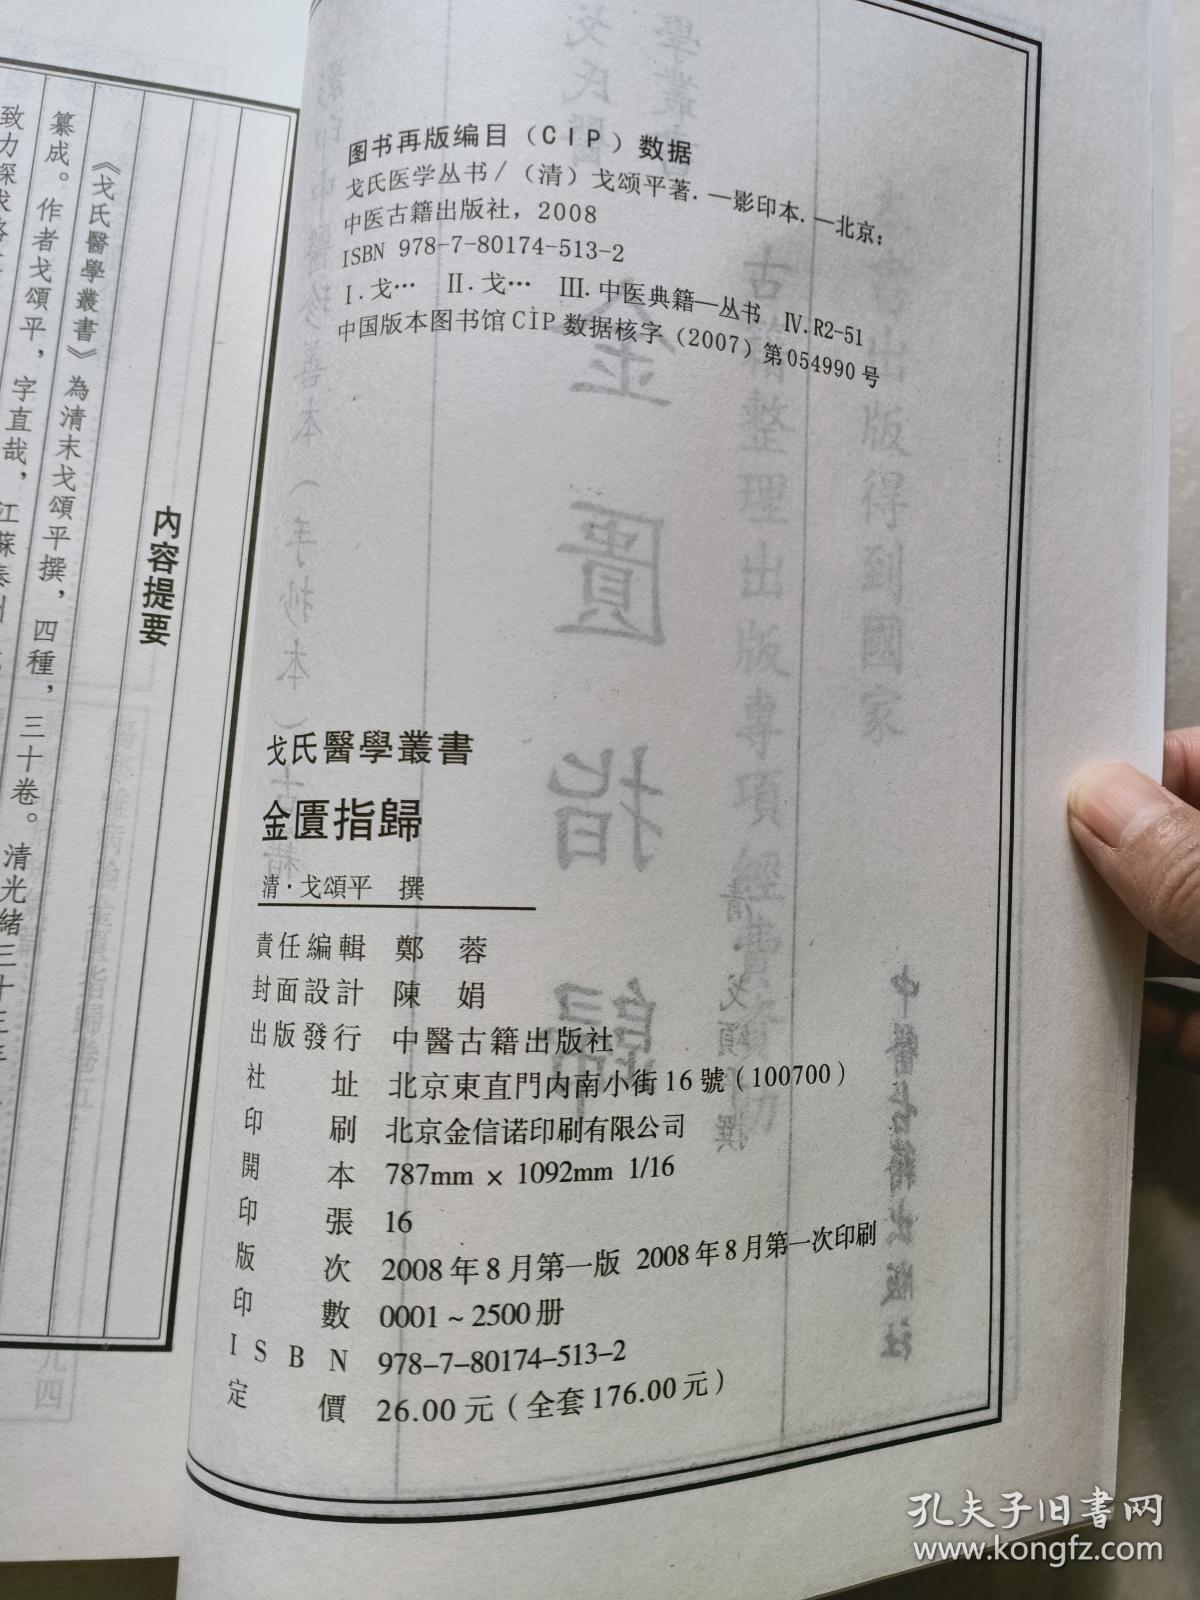 图书再版编目（CIP）数据
戈氏医学丛书/（清）戈颂平著.—影印本.—北京：
中医古籍出版社，2008
ISBN 978-7-80174-513-2
Ⅰ.戈… Ⅱ.戈… Ⅲ.中医典籍—丛书 Ⅳ.R2-51
中国版本图书馆CIP数据核字（2007）第054990号
戈氏醫學叢書
金匱指歸
清·戈頌平 撰
責任編輯 鄭 蓉
封面設計 陳 娟
出版發行 中醫古籍出版社
社 址 北京東直門内南小街16號（100700）
印 刷 北京金信诺印刷有限公司
開 本 787mm × 1092mm 1/16
印 張 16
版 次 2008年8月第一版 2008年8月第一次印刷
印 數 0001～2500册
ISBN 978-7-80174-513-2
定 價 26.00元（全套176.00元）
内容提要
《戈氏醫學叢書》為清末戈頌平撰，四種，三十卷。清光緒三十三年
纂成。作者戈頌平，字直哉，江蘇泰州
致力探求
孔夫子旧书网
www.kongfz.com